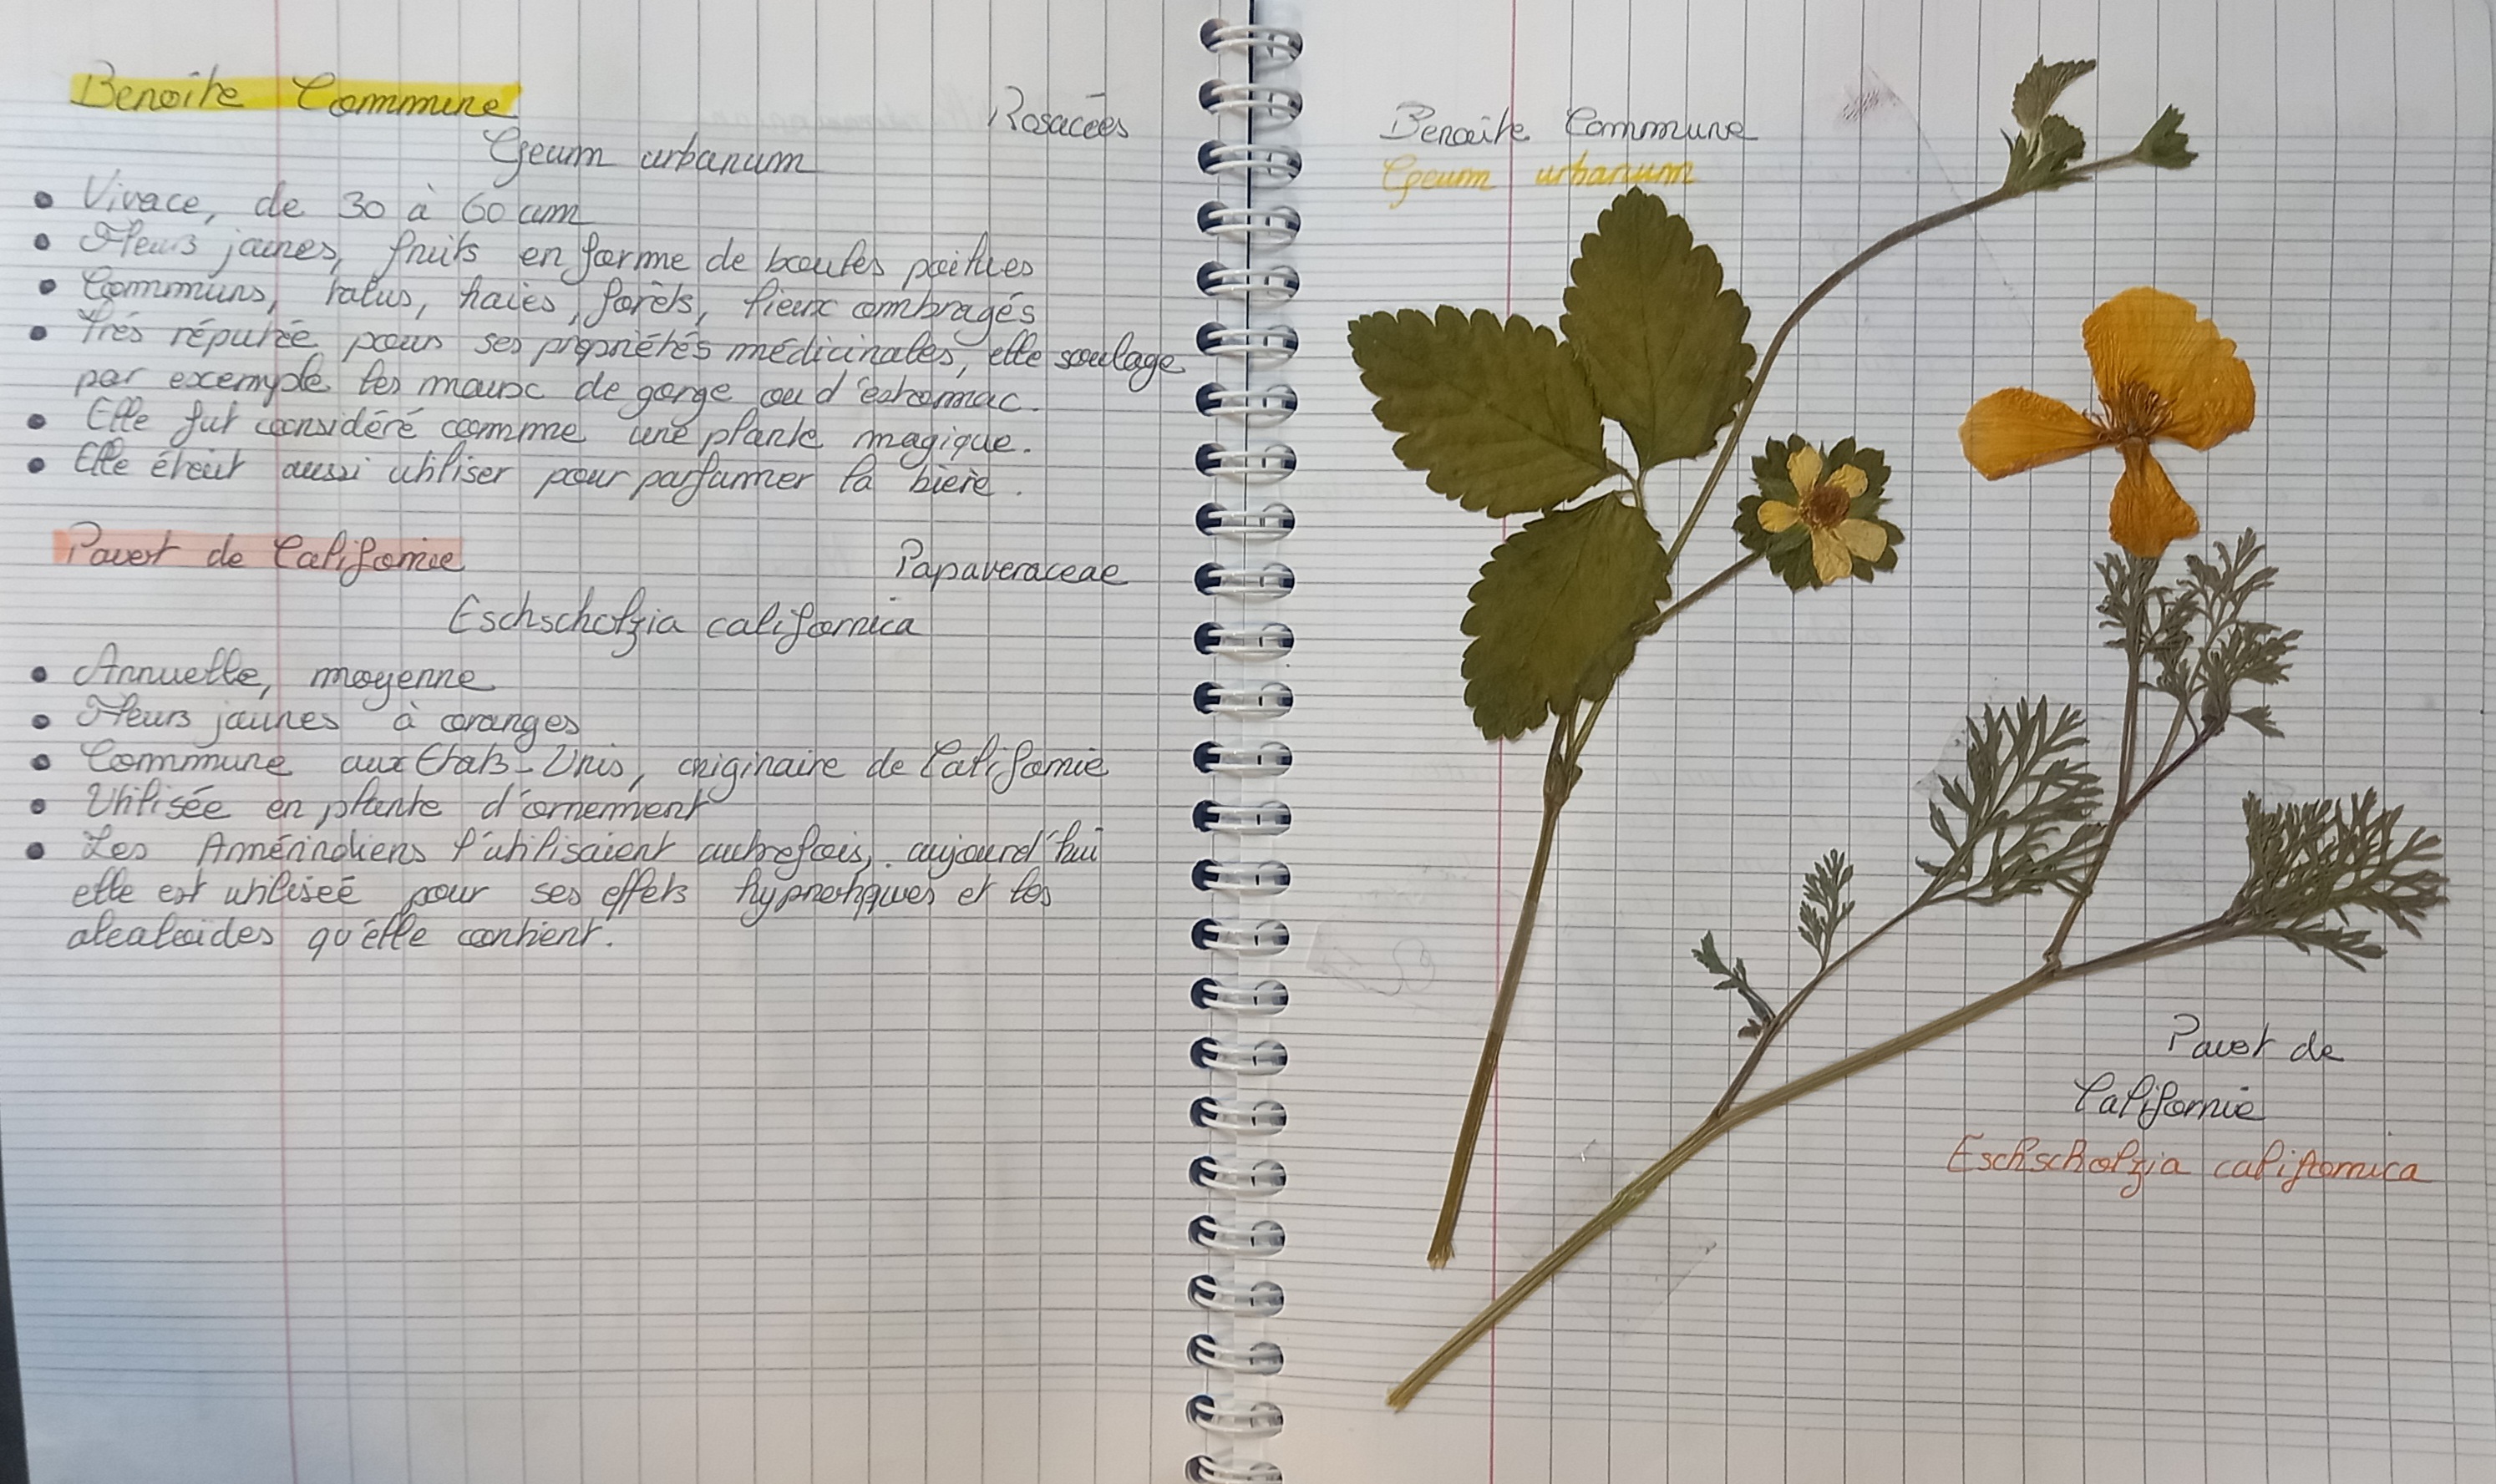 Benoîte Commune
Rosacées
Geum urbanum
• Vivace, de 30 à 60 cm
• Fleurs jaunes, fruits en forme de boules poilues
• Communs, talus, haies, forêts, lieux ombragés
• Très réputée pour ses propriétés médicinales, elle soulage
par exemple les maux de gorge ou d'estomac.
• Elle fut considéré comme une plante magique.
• Elle était aussi utiliser pour parfumer la bière.
Pavot de Californie
Papaveraceae
Eschscholzia californica
• Annuelle, moyenne
• Fleurs jaunes à oranges
• Commune aux Etats-Unis, originaire de Californie
• Utilisée en plante d'ornement
• Les Amérindiens l'utilisaient autrefois, aujourd'hui
elle est utilisée pour ses effets hypnotiques et les
alcaloïdes qu'elle contient.
Benoîte Commune
Geum urbanum
Pavot de
Californie
Eschscholzia californica